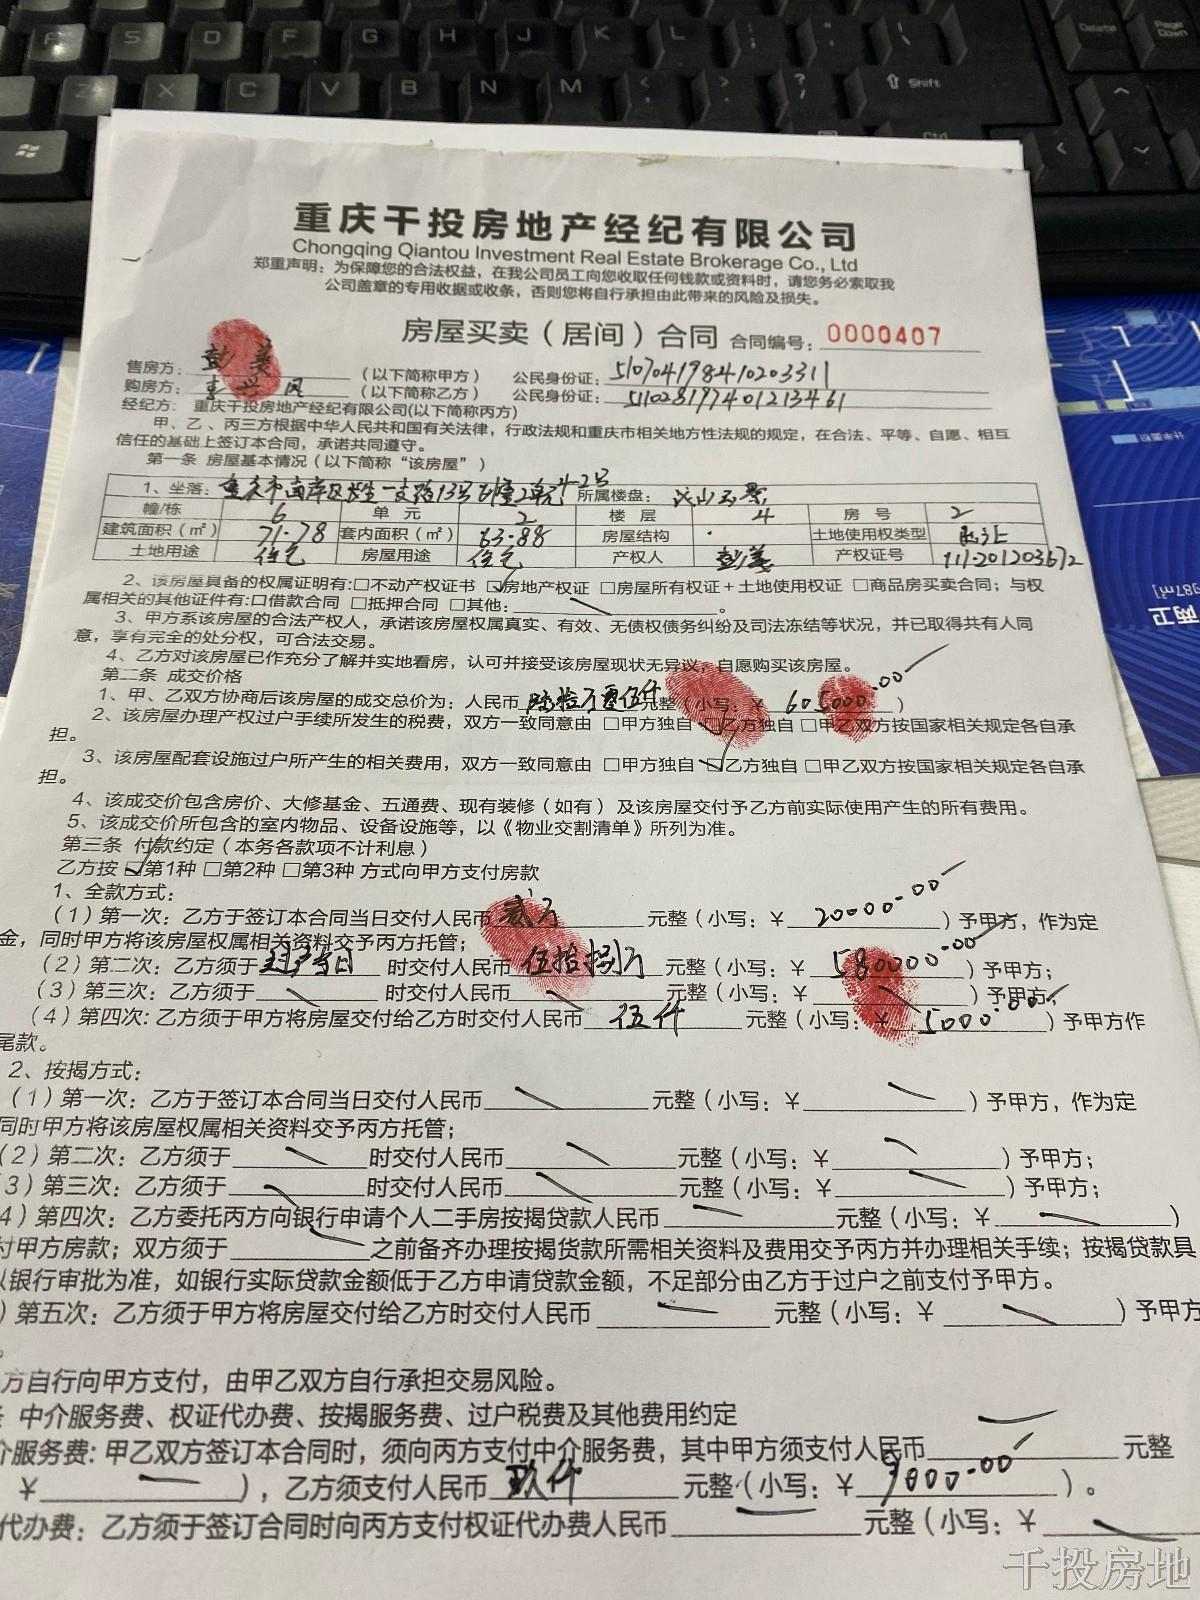 A S D F G H J K L Delete Page Down
Z X C V B N M Shift
重庆干投房地产经纪有限公司
Chongqing Qiantou Investment Real Estate Brokerage Co., Ltd
郑重声明：为保障您的合法权益，在我公司员工向您收取任何钱款或资料时，请您务必索取我
公司盖章的专用收据或收条，否则您将自行承担由此带来的风险及损失。
房屋买卖（居间）合同 合同编号：0000407
售房方：彭 （以下简称甲方） 公民身份证：510704198410203311
购房方：李兴凤 （以下简称乙方） 公民身份证：511028197401213461
经纪方：重庆干投房地产经纪有限公司(以下简称丙方)
甲、乙、丙三方根据中华人民共和国有关法律，行政法规和重庆市相关地方性法规的规定，在合法、平等、自愿、相互
信任的基础上签订本合同，承诺共同遵守。
第一条 房屋基本情况（以下简称“该房屋”）
1、坐落：重庆市南岸区长生一支路13号6幢2单元4-2号 所属楼盘：
幢/栋 6 单 元 2 楼 层 4 房 号 2
建筑面积（㎡） 71.78 套内面积（㎡） 63.88 房屋结构 土地使用权类型 出让
土地用途 住宅 房屋用途 住宅 产权人 彭 产权证号
2、该房屋具备的权属证明有:□不动产权证书 ☑房地产权证 □房屋所有权证＋土地使用权证 □商品房买卖合同；与权
属相关的其他证件有:口借款合同 □抵押合同 □其他： 。
3、甲方系该房屋的合法产权人，承诺该房屋权属真实、有效、无债权债务纠纷及司法冻结等状况，并已取得共有人同
意，享有完全的处分权，可合法交易。
4、乙方对该房屋已作充分了解并实地看房，认可并接受该房屋现状无异议，自愿购买该房屋。
第二条 成交价格
1、甲、乙双方协商后该房屋的成交总价为：人民币 陆拾万零伍仟 元整（小写：￥ 605000.00 ）
2、该房屋办理产权过户手续所发生的税费，双方一致同意由 □甲方独自 ☑乙方独自 □甲乙双方按国家相关规定各自承
担。
3、该房屋配套设施过户所产生的相关费用，双方一致同意由 □甲方独自 ☑乙方独自 □甲乙双方按国家相关规定各自承
担。
4、该成交价包含房价、大修基金、五通费、现有装修（如有）及该房屋交付予乙方前实际使用产生的所有费用。
5、该成交价所包含的室内物品、设备设施等，以《物业交割清单》所列为准。
第三条 付款约定（本务各款项不计利息）
乙方按 ☑第1种 □第2种 □第3种 方式向甲方支付房款
1、全款方式：
（1）第一次：乙方于签订本合同当日交付人民币 贰万 元整（小写：￥ 20000.00 ）予甲方，作为定
金，同时甲方将该房屋权属相关资料交予丙方托管；
（2）第二次：乙方须于 过户当日 时交付人民币 伍拾捌万 元整（小写：￥ 580000.00 ）予甲方；
（3）第三次：乙方须于 时交付人民币 元整（小写：￥ ）予甲方；
（4）第四次：乙方须于甲方将房屋交付给乙方时交付人民币 伍仟 元整（小写：￥ 5000.00 ）予甲方作
尾款。
2、按揭方式：
（1）第一次：乙方于签订本合同当日交付人民币 元整（小写：￥ ）予甲方，作为定
同时甲方将该房屋权属相关资料交予丙方托管；
（2）第二次：乙方须于 时交付人民币 元整（小写：￥ ）予甲方；
3）第三次：乙方须于 时交付人民币 元整（小写：￥ ）予甲方；
4）第四次：乙方委托丙方向银行申请个人二手房按揭贷款人民币 元整（小写：￥ ）
付甲方房款；双方须于 之前备齐办理按揭货款所需相关资料及费用交予丙方并办理相关手续；按揭贷款具
以银行审批为准，如银行实际贷款金额低于乙方申请贷款金额，不足部分由乙方于过户之前支付予甲方。
）第五次：乙方须于甲方将房屋交付给乙方时交付人民币 元整（小写：￥ ）予甲方
方自行向甲方支付，由甲乙双方自行承担交易风险。
中介服务费、权证代办费、按揭服务费、过户税费及其他费用约定
介服务费：甲乙双方签订本合同时，须向丙方支付中介服务费，其中甲方须支付人民币 元整
￥ ），乙方须支付人民币 玖仟 元整（小写：￥ 9000.00 ）。
代办费：乙方须于签订合同时向丙方支付权证代办费人民币 元整（小写：￥
千投房地